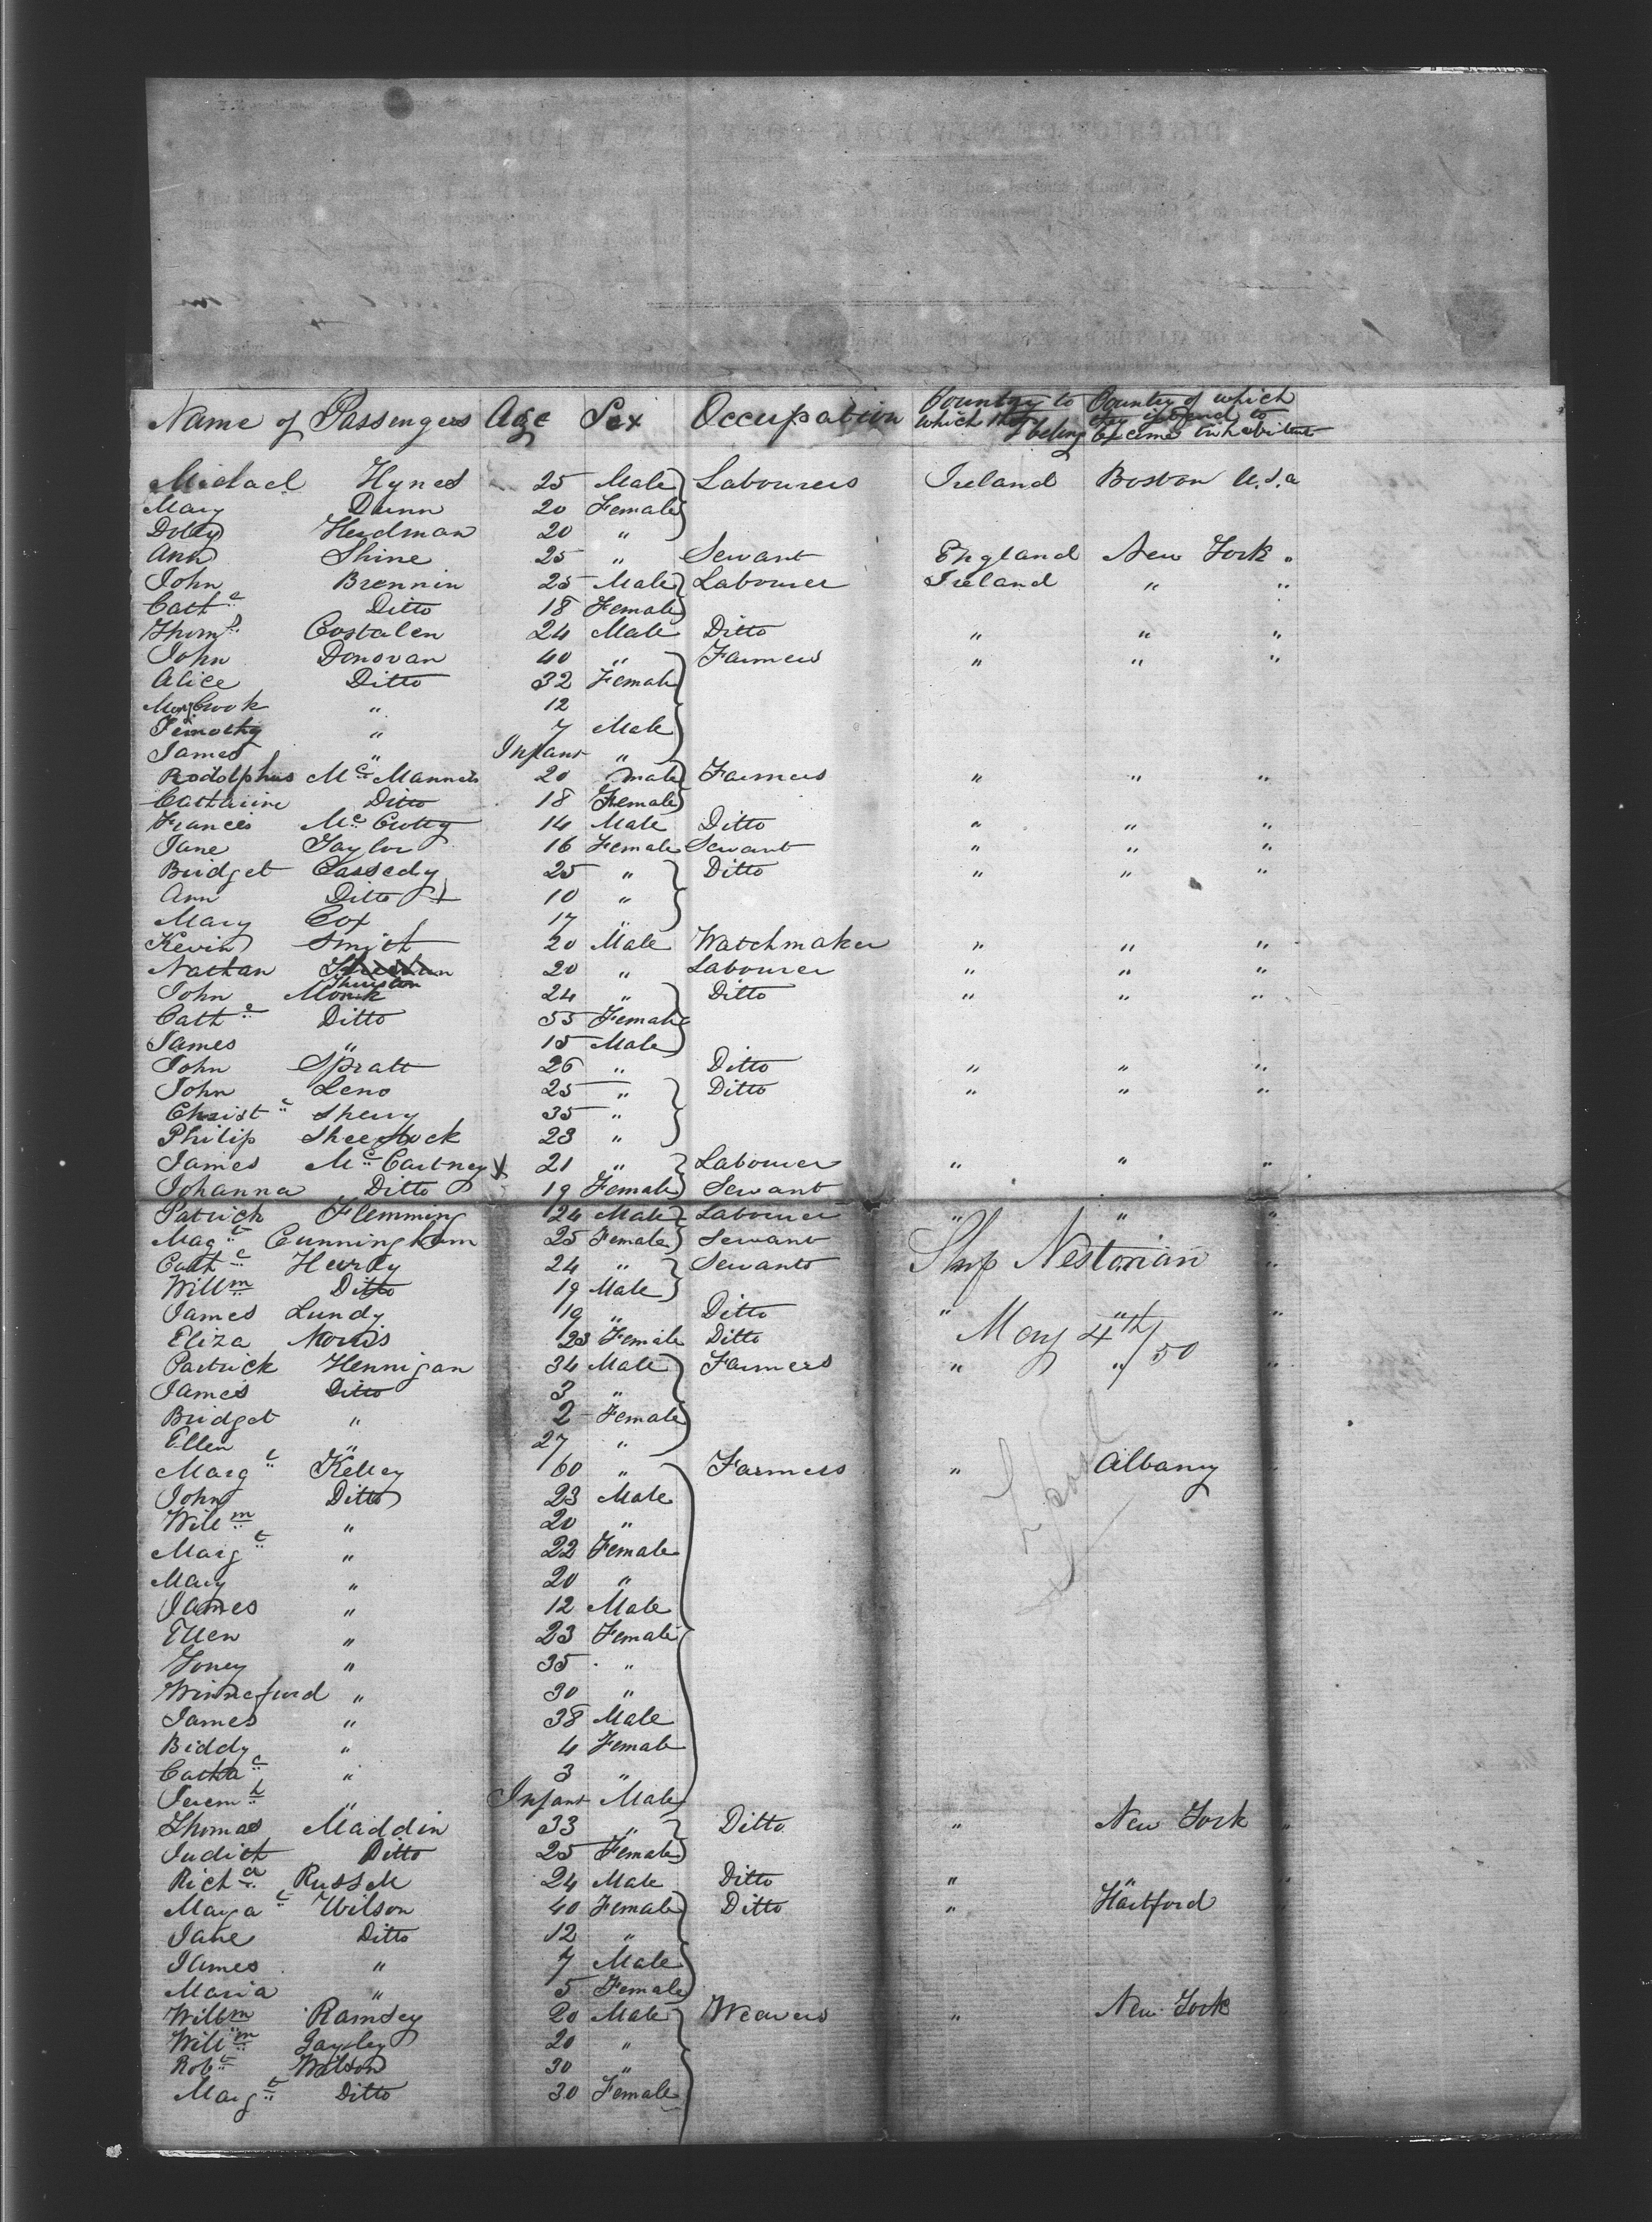 Name of Passengers Age Sex Occupation Country to which they belong Country of which they intend to become inhabitants
Michael Hynes 25 Male Labourers Ireland Boston U.S.a
Mary Dunn 20 Female
Dolly Herdman 20 "
Ann Shine 25 " Servant England New York "
John Brennin 25 Male Labourer Ireland " "
Cathe Ditto 18 Female
Thoms Costalen 24 Male Ditto " " "
John Donovan 40 " Farmers " " "
Alice Ditto 32 Female
" 12
Timothy " 7 Male
James " Infant "
Rodolphus McManners 20 male Farmers " " "
Catharine Ditto 18 Female
Frances Mc 14 Male Ditto " " "
Jane Taylor 16 Female Servant " " "
Bridget Cassedy 25 " Ditto " " "
Ann Ditto 10 "
Mary Cox 17 "
Kevin Smith 20 Male Watchmaker " " "
Nathan Thurston 20 " Labourer " " "
John Monk 24 " Ditto " " "
Cathe Ditto 55 Female
James " 15 Male
John Spratt 26 " Ditto " " "
John Leno 25 " Ditto " " "
Christr Sherry 35 "
Philip Sheerlock 23 "
James McCartney 21 " Labourer " " "
Johanna Ditto 19 Female Servant
Patrick Flemming 24 Male Labourer " " "
Magt Cunningham 25 Female Servant
Cathe Heurdy 24 " Servants Ship Nestorian "
Willm Ditto 19 Male
James Lundy 19 " Ditto " " "
Eliza Morris 23 Female Ditto May 4th/50
Patrick Hennigan 34 Male Farmers " " "
James Ditto 3 "
Bridget " 2 Female
Ellen " 27 "
Margt Kelley 60 " Farmers " Albany
John Ditto 23 Male
Willm " 20 "
Margt " 22 Female
Mary " 20 "
James " 12 Male
Ellen " 23 Female
Honey " 35 "
Winneford " 30 "
James " 38 Male
Biddy " 4 Female
Catha " 3 "
Jeremh " Infant Male
Thomas Maddin 33 " Ditto " New York "
Judith Ditto 25 Female
Richd Russell 24 Male Ditto " "
Margat Wilson 40 Female Ditto " Hartford
Jane Ditto 12 "
James " 7 Male
Maria " 5 Female
Willm Ramsey 20 Male Weavers " New York
Willm Gayley 20 "
Robt Wilson 30 "
Margt Ditto 30 Female